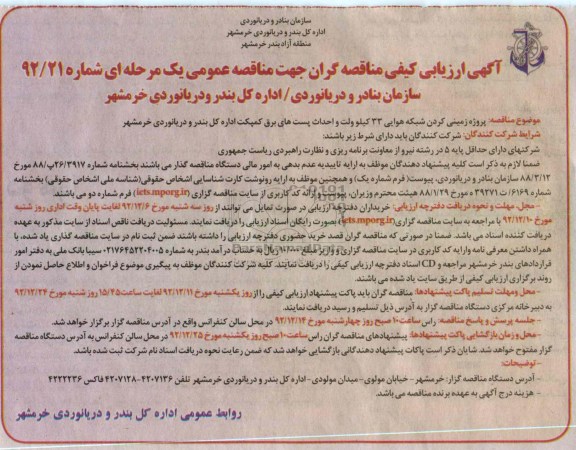 سازمان بنادر و دریانوردی
اداره کل بندر و دریانوردی خرمشهر
منطقه آزاد بندر خرمشهر
آگهی ارزیابی کیفی مناقصه گران جهت مناقصه عمومی یک مرحله ای شماره ۹۲/۲۱
سازمان بنادر و دریانوردی / اداره کل بندر و دریانوردی خرمشهر
موضوع مناقصه: پروژه زمینی کردن شبکه هوایی ۳۳ کیلو ولت و احداث پست های برق کمپکت اداره کل بندر و دریانوردی خرمشهر
شرایط شرکت کنندگان: شرکت کنندگان باید دارای شرط زیر باشند:
شرکتهای دارای حداقل پایه ۵ در رشته نیرو از معاونت برنامه ریزی و نظارت راهبردی ریاست جمهوری
ضمنا لازم به ذکر است کلیه پیشنهاد دهندگان موظف به ارایه تاییدیه عدم بدهی به امور مالی دستگاه مناقصه گذار می باشند بخشنامه شماره ۲۶/۳۹۱۷پ/۸۸ مورخ
۸۸/۳/۱۲ سازمان بنادر و دریانوردی، پیوست( فرم شماره یک) و همچنین موظف به ارایه رونوشت کارت شناسایی اشخاص حقوقی(شناسه ملی اشخاص حقوقی) بخشنامه
شماره ۶۱۶۹/ت ۳۹۲۷۱ ه مورخ ۸۸/۱/۲۹ هیئت محترم وزیران، پیوست( ارائه کد کاربری از سایت مناقصه گزاری (icts.mporg.ir) فرم شماره دو می باشند.
-محل، مهلت و نحوه دریافت دفترچه ارزیابی: خریداران دفترچه ارزیابی در صورت تمایل می توانند از روز سه شنبه مورخ ۹۲/۱۲/۶ لغایت پایان وقت اداری روز شنبه
مورخ ۹۲/۱۲/۱۰ با مراجعه به سایت مناقصه گزاری (icts.mporg.ir) بصورت رایگان اسناد ارزیابی را دریافت نمایند. مسئولیت دریافت ناقص اسناد از سایت مذکور به عهده
دریافت کننده اسناد می باشد. ضمنا در صورتی که مناقصه گران قصد خرید حضوری دفترچه ارزیابی را داشته باشند ضمن ثبت نام در سایت مناقصه گذاری یاد شده، با
همراه داشتن معرفی نامه وارایه کد کاربری در سایت مناقصه گزاری و واریز مبلغ ریال به حساب درآمد بندر به شماره ۲۱۷۶۴۵۲۲۰۴۰۰۵ سیبا بانک ملی به دفتر امور
قراردادهای بندر خرمشهر مراجعه و CD اسناد دفترچه ارزیابی کیفی را دریافت نمایند. کلیه شرکت کنندگان موظف به پیگیری موضوع فراخوان و اطلاع حاصل نمودن از
روند برگزاری ارزیابی کیفی از طریق سایت یاد شده می باشند.
-محل ومهلت تسلیم پاکت پیشنهادها: مناقصه گران باید پاکت پیشنهاد ارزیابی کیفی را از روز یکشنبه مورخ ۹۲/۱۲/۱۱ لغایت ساعت ۱۵/۴۵ روز شنبه مورخ ۹۲/۱۲/۲۴
به دبیرخانه مرکزی دستگاه مناقصه گزار به آدرس ذیل تسلیم و رسید دریافت نمایند.
-جلسه پرسش و پاسخ مناقصه: راس ساعت ۱۰ صبح روز چهارشنبه مورخ ۹۲/۱۲/۱۴ در محل سالن کنفرانس واقع در آدرس مناقصه گزار برگزار خواهد شد.
-محل وزمان بازگشایی پاکت پیشنهادها: پیشنهادهای مناقصه گران راس ساعت ۱۰ صبح روز یکشنبه مورخ ۹۲/۱۲/۲۵ در محل سالن کنفرانس به آدرس دستگاه مناقصه
گزار مفتوح خواهد شد. شایان ذکر است پاکات پیشنهاد دهندگانی بازگشایی خواهد شد که ضمن رعایت نحوه دریافت اسناد نام شرکت ثبت شده باشد.
-توضیحات:
- آدرس دستگاه مناقصه گزار: خرمشهر - خیابان مولوی-میدان مولودی - اداره کل بندر و دریانوردی خرمشهر تلفن ۴۲۰۷۱۳۶-۴۲۰۷۱۲۸ فاکس ۴۲۲۲۲۳۶
- هزینه درج آگهی به عهده برنده مناقصه می باشد.
روابط عمومی اداره کل بندر و دریانوردی خرمشهر